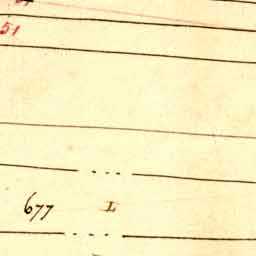 51
677 L